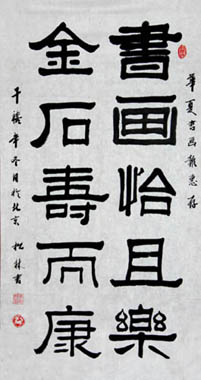 華夏書画報惠存
書画怡且樂
金石壽而康
千禧年冬月於北京 松林書